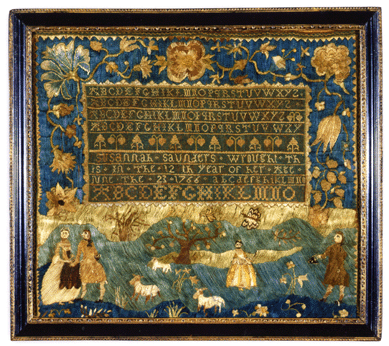 ABCDEFGHIKLMNOPQRSTUVWXYZ
ABCDEFGHIKLMNOPQRSTUVWXYZ
ABCDEFGHIKLMNOPQRSTUVWXYZ
ABCDEFGHIKLMNOPQRSTUVWXY
Susannah Saunders Wrought Th
is in the 12 th Year of her Age
June the 23 1766 abcdefghiklmno